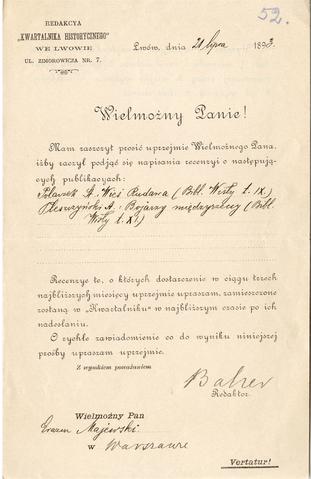 52.
REDAKCYA
„KWARTALNIKA HISTORYCZNEGO"
WE LWOWIE
UL. ZIMOROWICZA NR. 7.
Lwów, dnia 21 lipca 1893.
Wielmożny Panie!
Mam zaszczyt prosić uprzejmie Wielmożnego Pana,
iżby raczył podjąć się napisania recenzyi o następują-
cych publikacyach:
Polaczek St. Wieś Rudawa (Bibl. Wisły t. IX)
Pleszczyński A. Bojarzy międzyrzeccy (Bibl.
Wisły t. XI)
Recenzye te, o których dostarczenie w ciągu trzech
najbliższych miesięcy uprzejmie upraszam, zamieszczone
zostaną w „Kwartalniku" w najbliższym czasie po ich
nadesłaniu.
O rychłe zawiadomienie co do wyniku niniejszej
prośby upraszam uprzejmie.
Z wysokiem poważaniem
Balzer
Redaktor.
Wielmożny Pan
Erazm Majewski
w Warszawie
Vertatur!